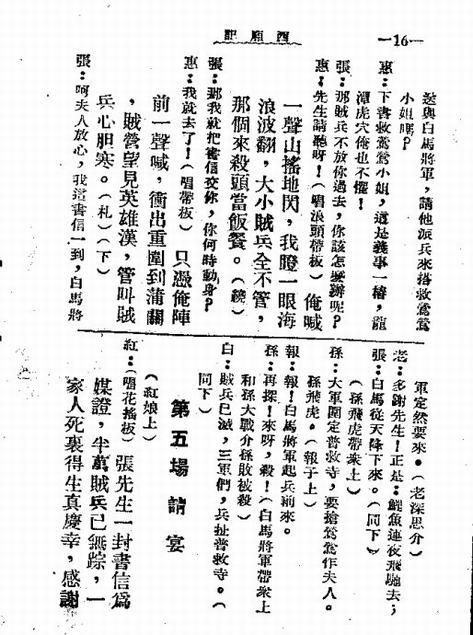 —16—
西廂記
送與白馬將軍，請他派兵來搭救鶯鶯
小姐嗎？
惠：下書救鶯鶯小姐，這是義事一樁，龍
潭虎穴俺也不懼！
張：那賊兵不放你過去，你該怎麽辦呢？
惠：先生請聽呀！（唱浪頭帶板）俺喊
一聲山搖地閃，我瞪一眼海
浪波翻，大小賊兵全不管，
那個來殺頭當飯餐。（繞）
張：那我就把書信交你，你何時動身？
惠：我就去了！（唱帶板）只憑俺陣
前一聲喊，衝出重圍到蒲關
，賊營望見英雄漢，管叫賊
兵心胆寒。（札）（下）
張：呵夫人放心，我這書信一到，白馬將
軍定然要來。（老深思介）
老：多謝先生！正是：鯉魚連夜飛騐去；
張：白馬從天降下來。（同下）
（孫飛虎帶衆上）
孫：大軍圍定普救寺，要搶鶯鶯作夫人。
孫飛虎。（報子上）
報：報！白馬將軍起兵前來。
孫：再探！來呀，殺！（白馬將軍帶衆上
和孫大戰介孫敗被殺）
白：賊兵已滅，三軍們，兵扯普救寺。（
同下）
第五場　請宴
（紅娘上）
紅：（唱花搖板）張先生一封書信爲
媒證，半萬賊兵已無踪，一
家人死裏得生真慶幸，感謝